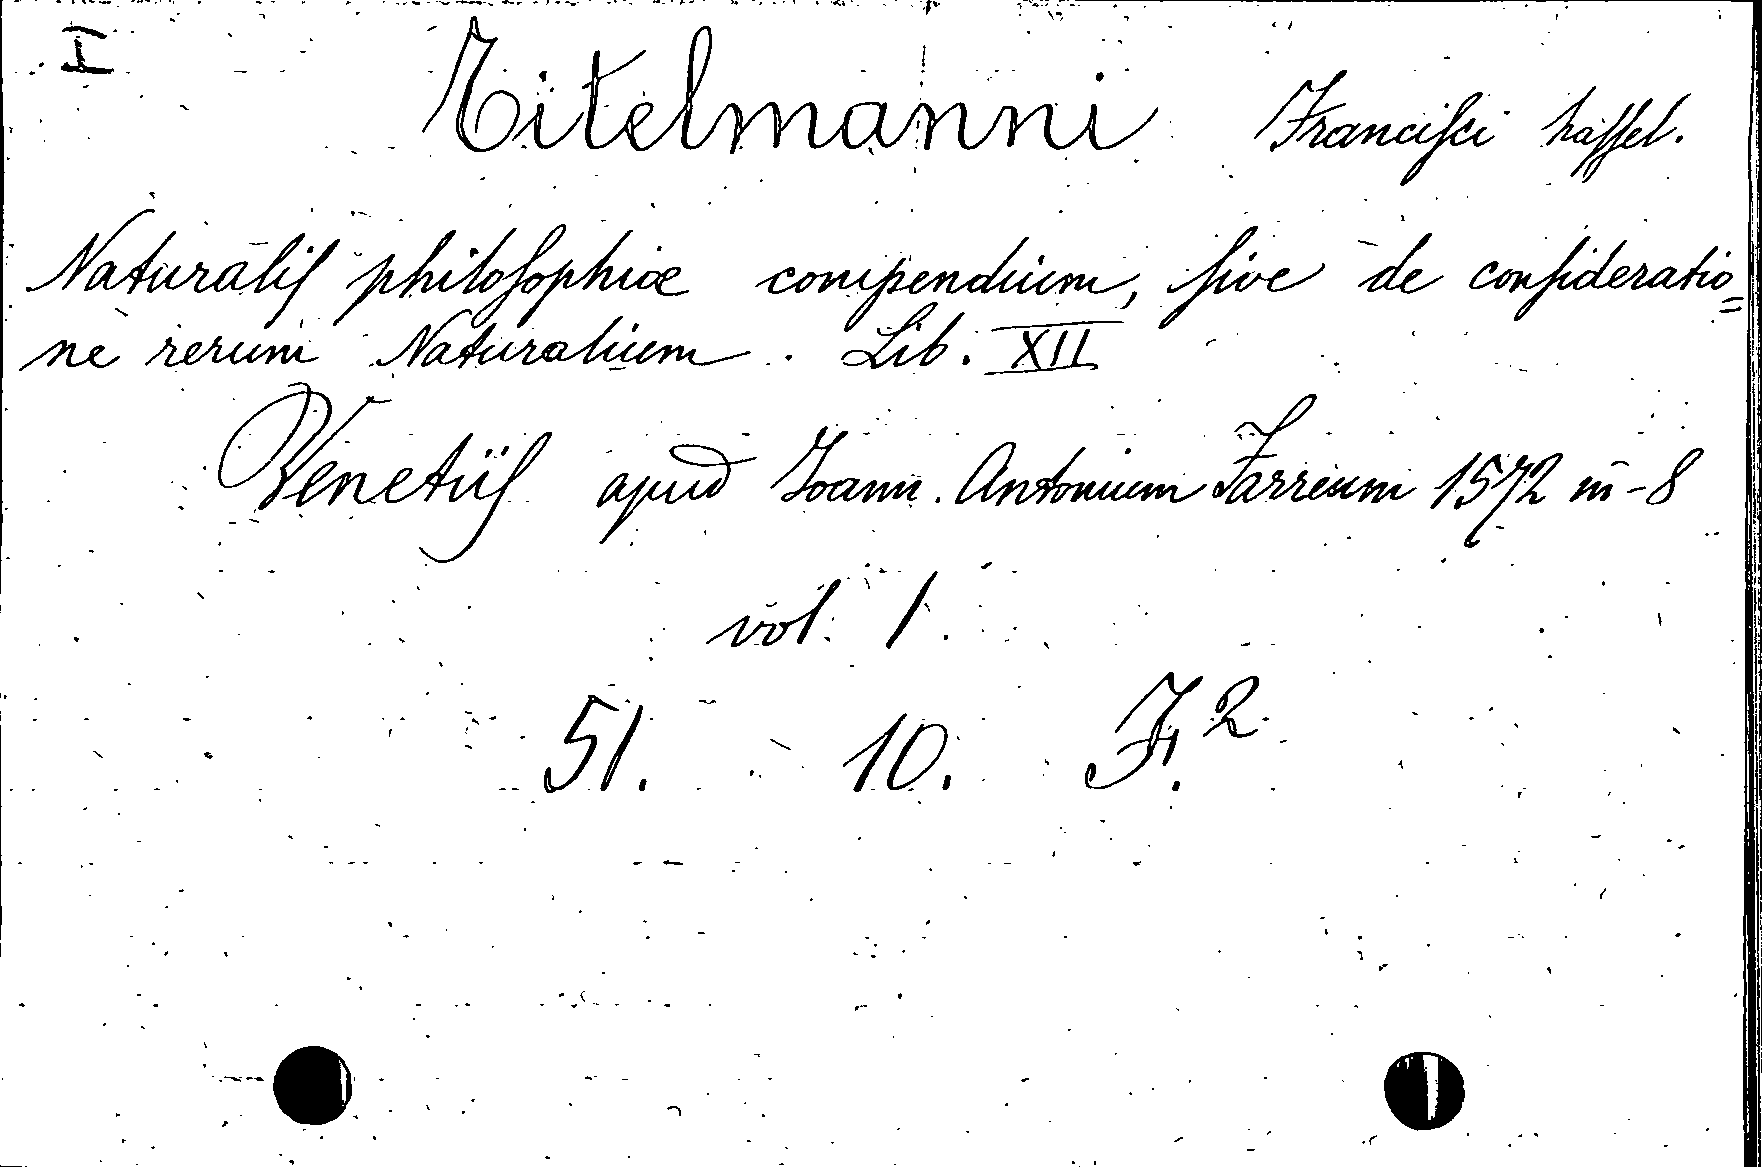 I
Titelmanni Franciſci haſſel.
Naturaliſ philoſophiæ compendium, ſive de conſideratio=
ne rerum Naturalium. Lib. XII
Venetiiſ apud Joann. Antonium Farreum 1572 in-8
vol. 1.
51. 10. F.2